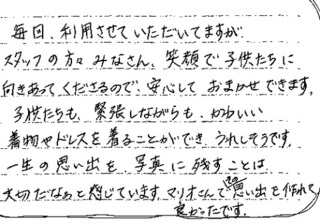 毎回、利用させていただいてますが
スタッフの方々みなさん、笑顔で子供たちに
向きあってくださるので、安心しておまかせできます。
子供たちも、緊張しながらも、かわいい
着物やドレスを着ることができ、うれしそうです。
一生の思い出を、写真に残すことは
大切だなぁと感じています。マリオさんで良い思い出を作れて
良かったです。